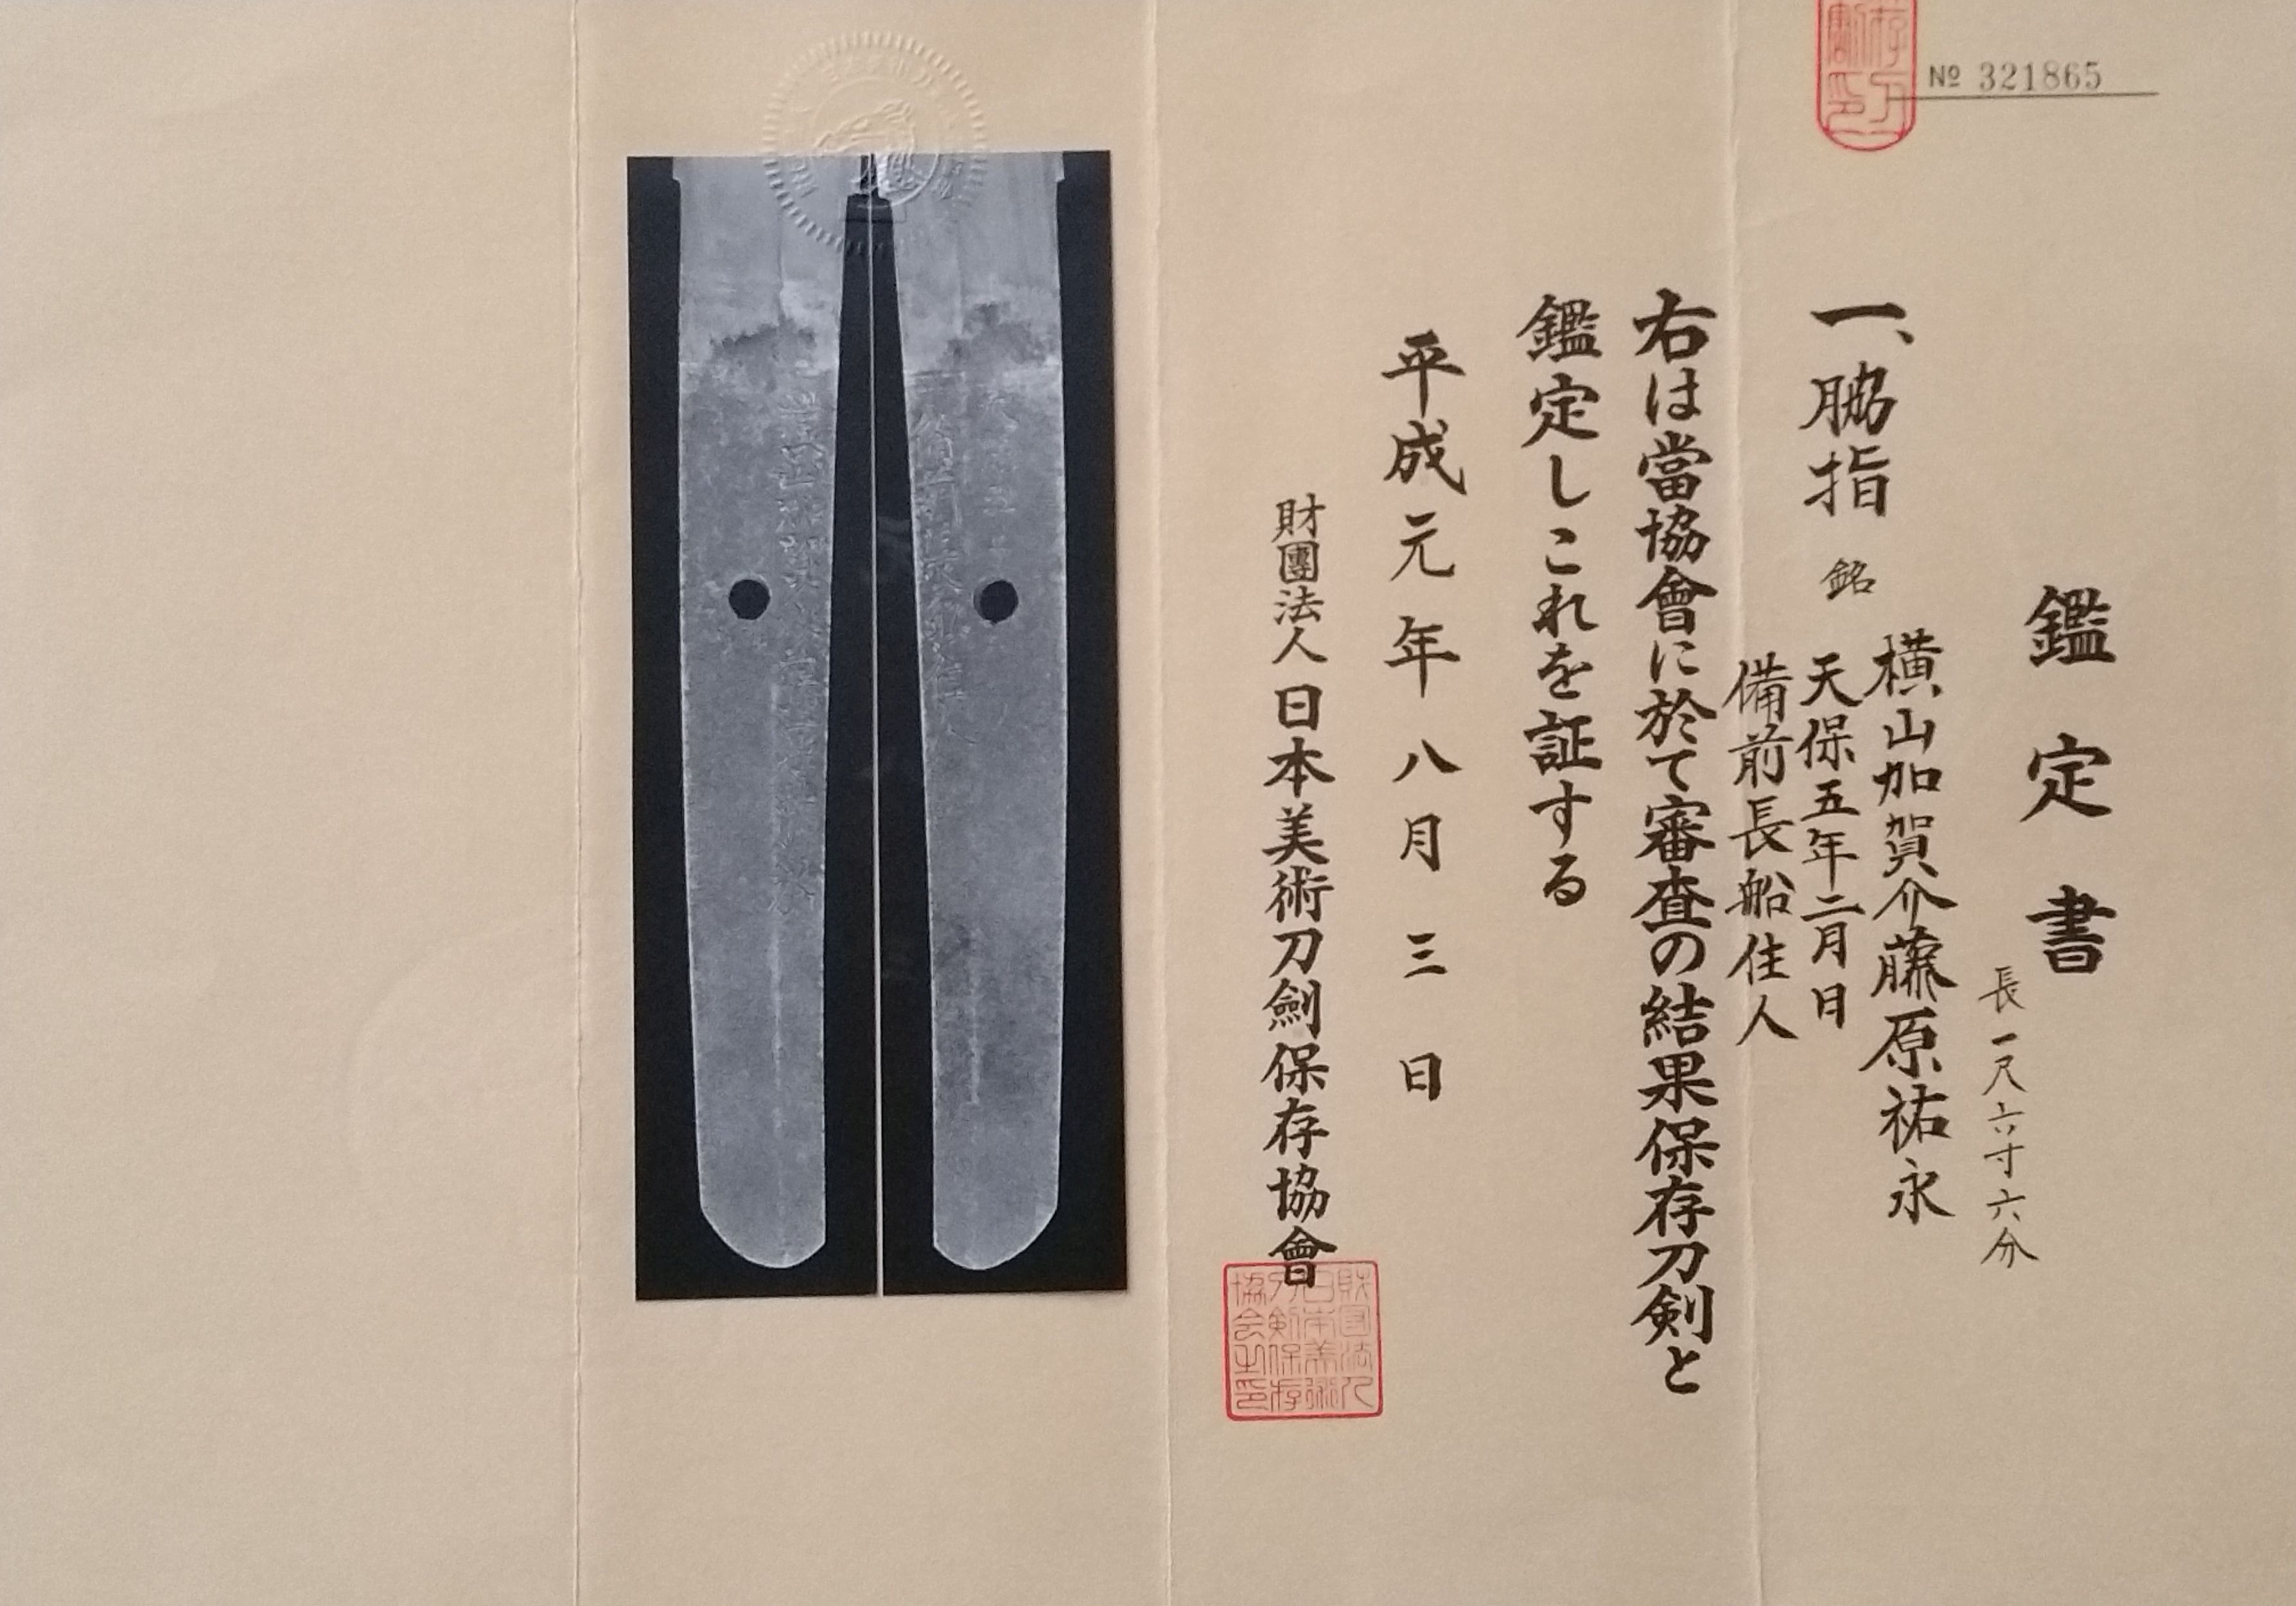 № 321865
鑑定書
長一尺六寸六分
一、脇指 銘
横山加賀介藤原祐永
天保五年二月日
備前長船住人
右は當協會に於て審査の結果保存刀剣と
鑑定しこれを証する
平成元年八月三日
財團法人日本美術刀劍保存協會
財団法人
日本美術
刀剣保存
協会之印